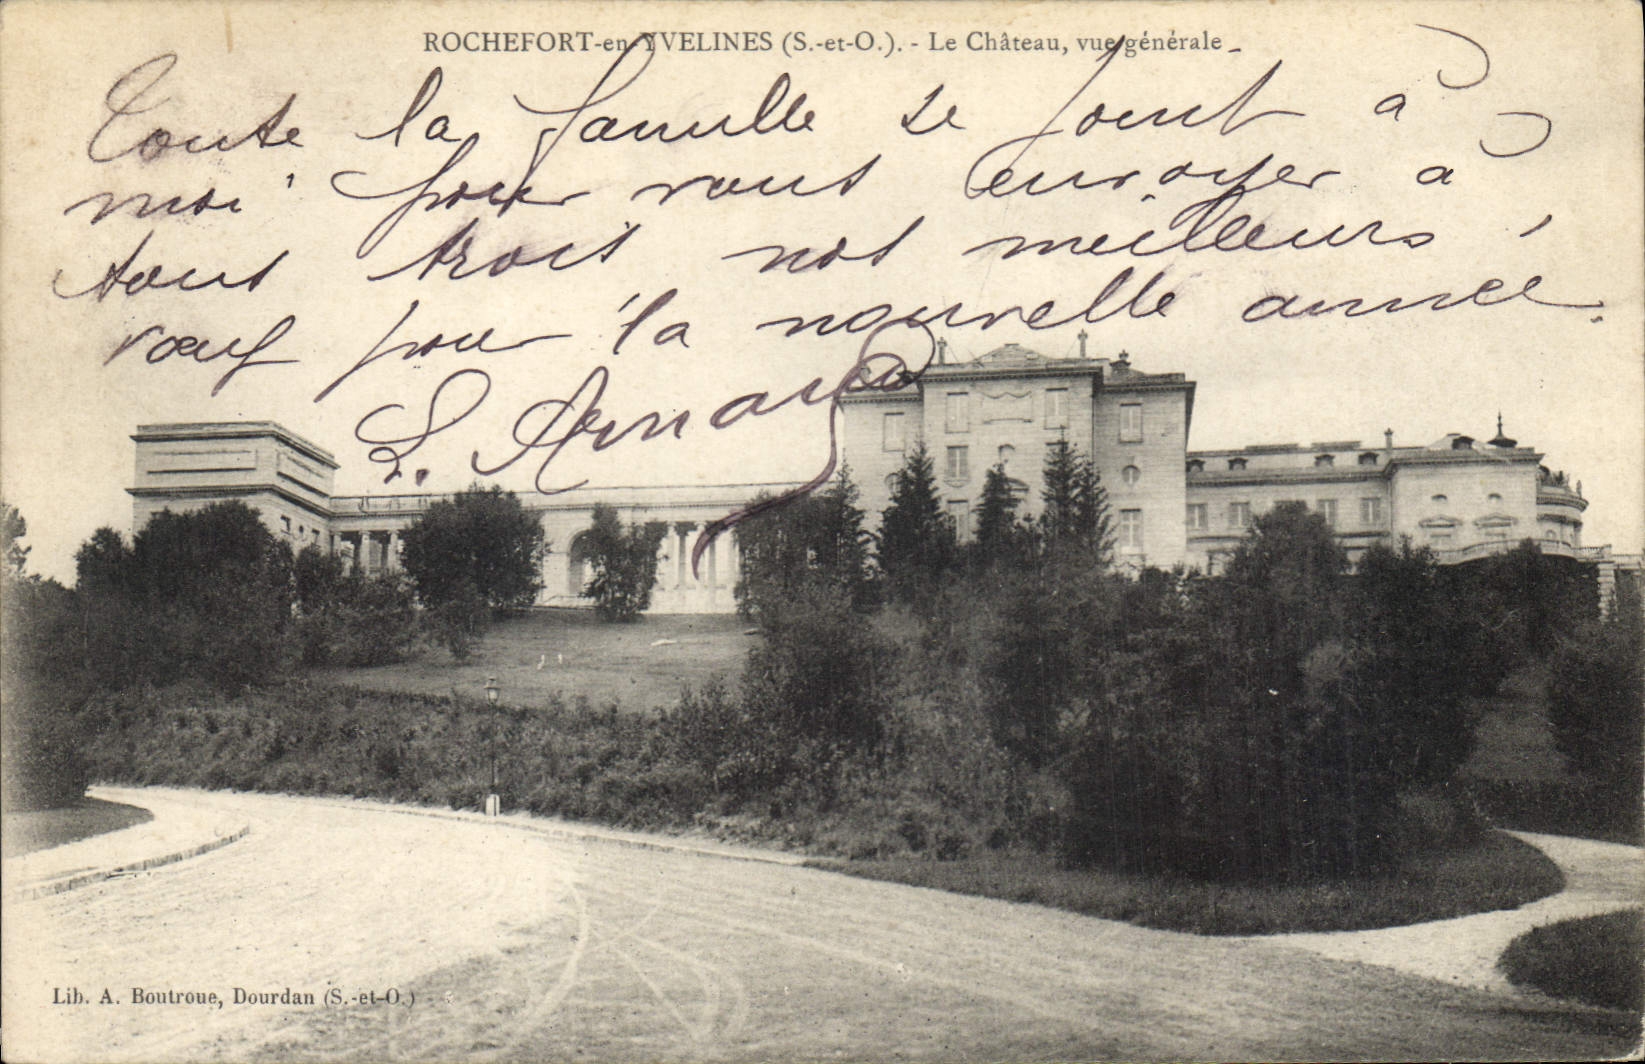 ROCHEFORT-en-YVELINES (S.-et-O.). - Le Château, vue générale
Toute la famille se joint à
moi pour vous envoyer à
tous trois nos meilleurs
vœux pour la nouvelle année.
L. Arnaud
Lib. A. Boutroue, Dourdan (S.-et-O.)